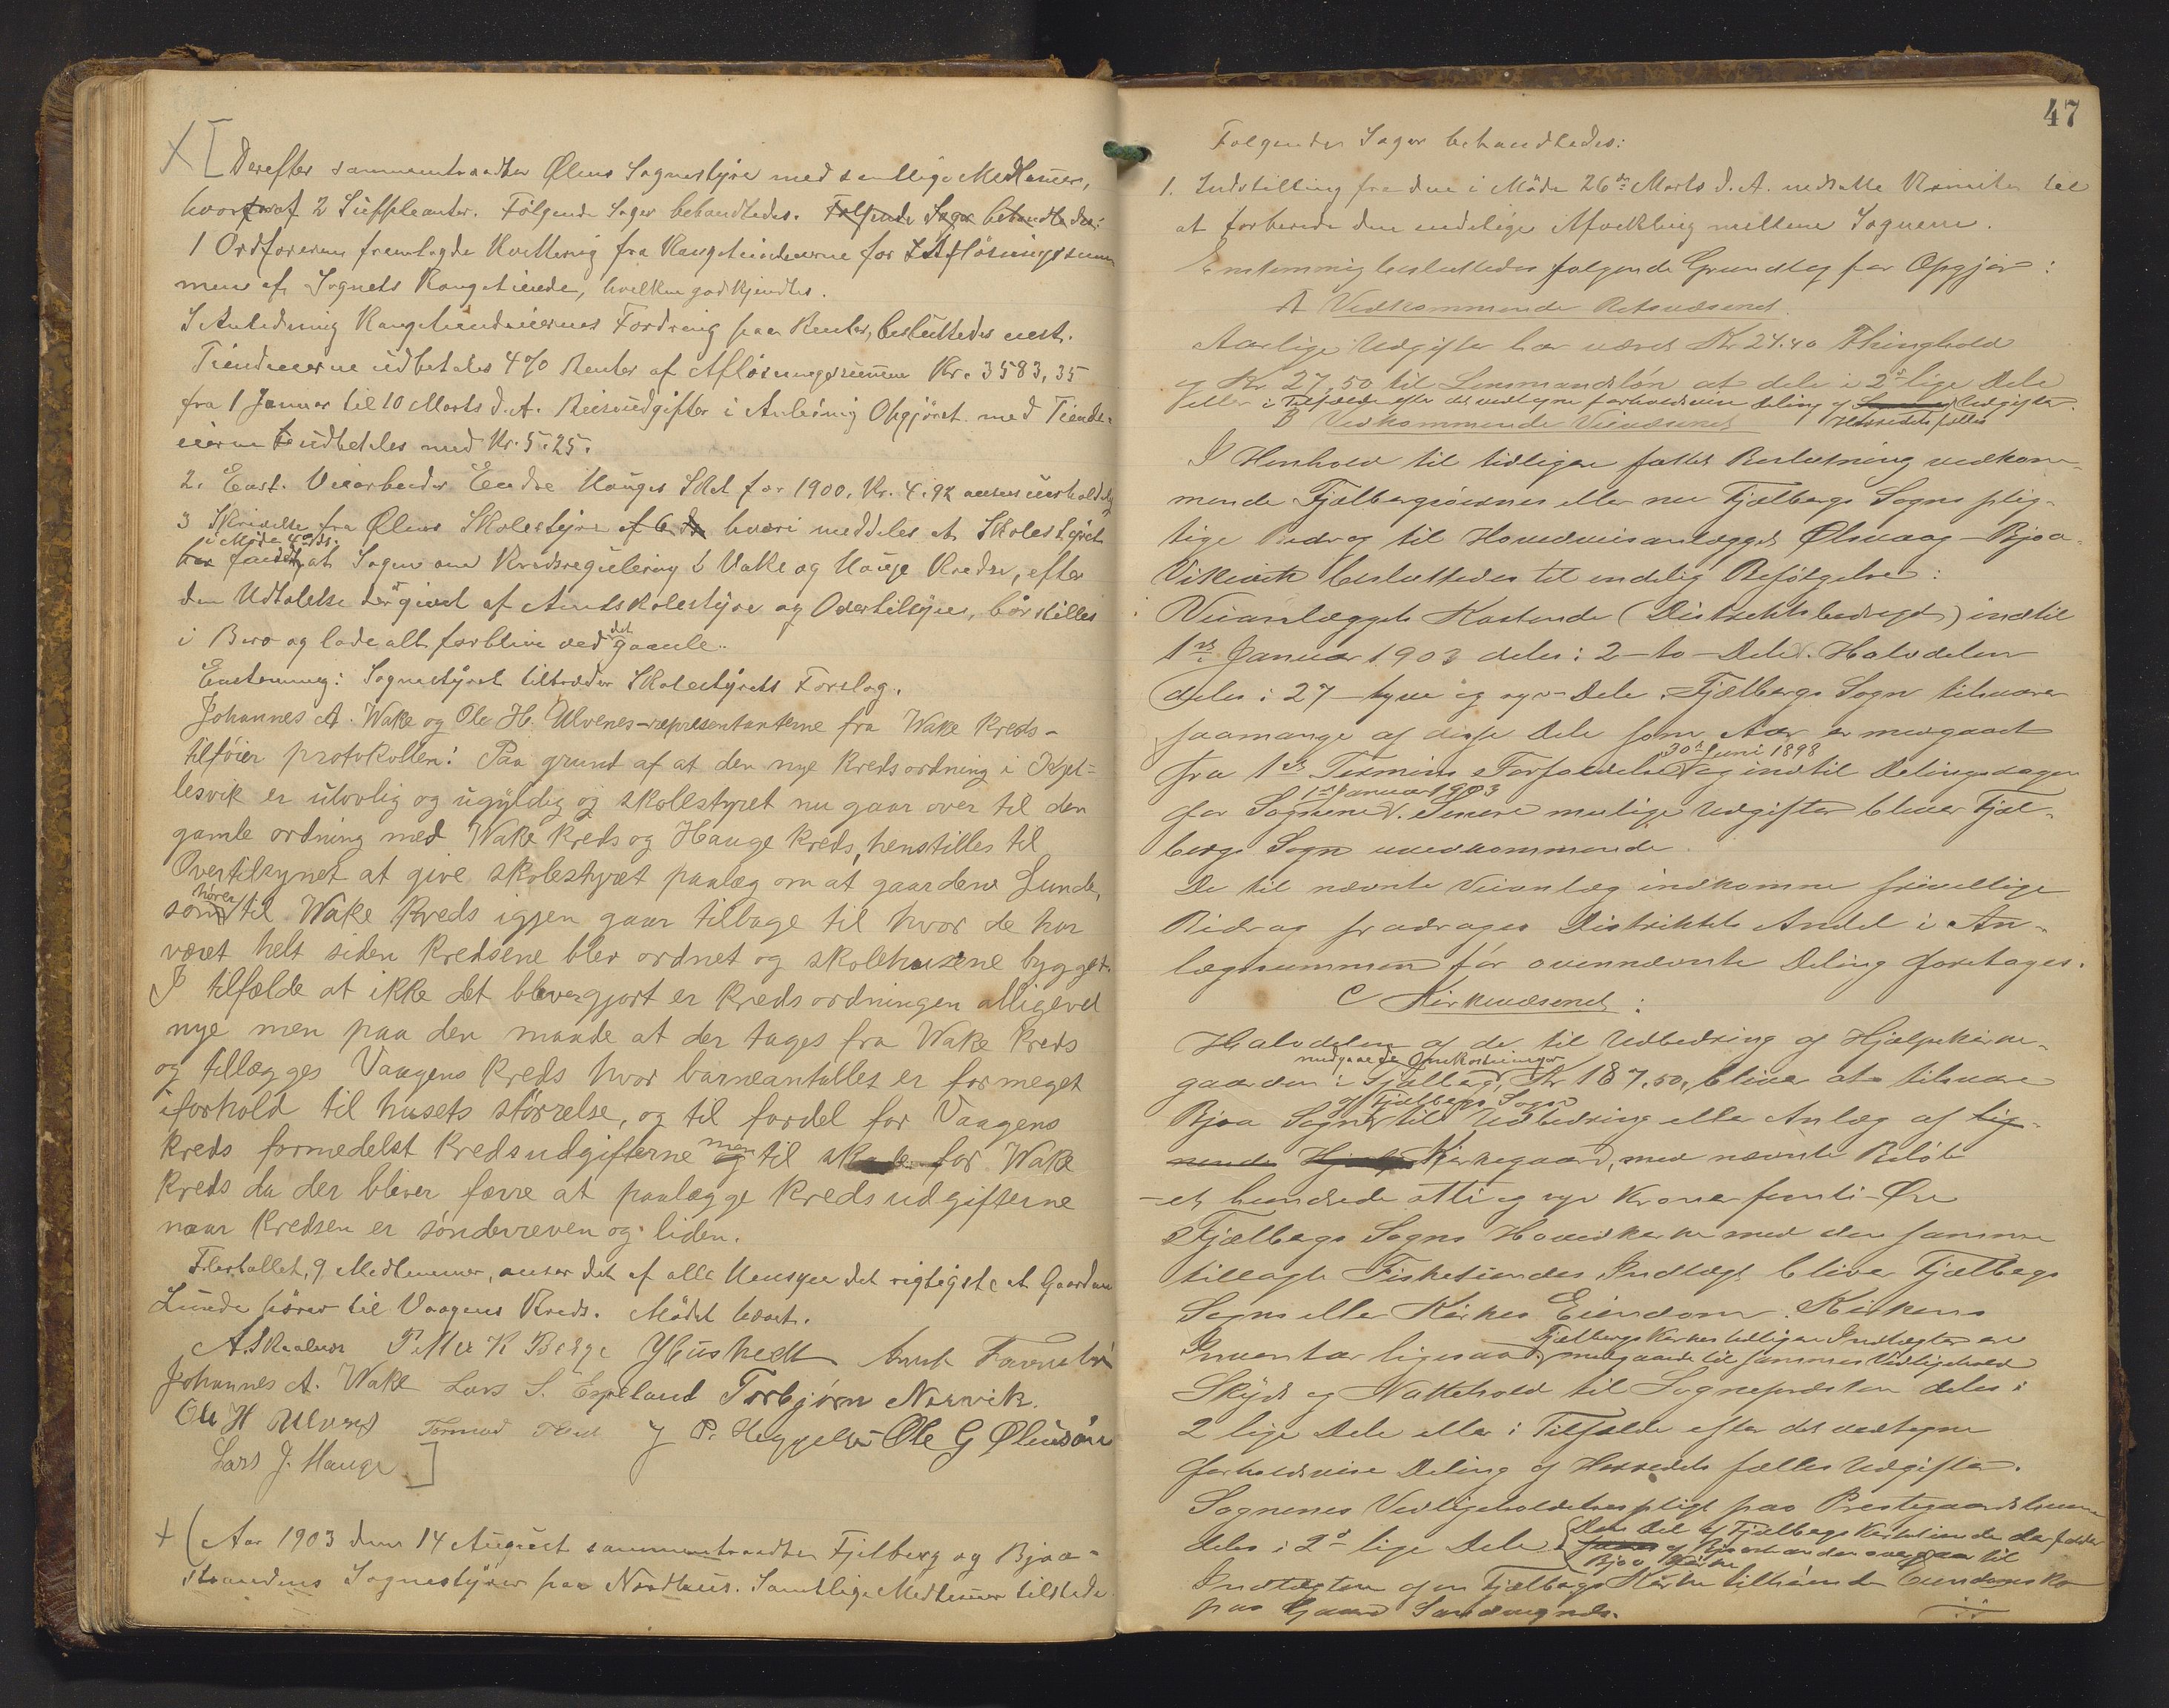 Derefter sammentraadte Ølens Sognestyre med samtlige Medlemer,
hvoraf 2 Suppleanter. Følgende Sager behandledes. Følgende Sager behandledes:
1 Ordføreren fremlagde Kvittering fra Kongetiendeierne for Afløsningssum
men af Sognets Kongetiende, hvilken godkjendtes.
I Anledning Kongetiendeiernes Fordring paa Renter, besluttedes enst.
Tiendeierne udbetales 4% Renter af Afløsningssummen Kr. 3583,35
fra 1 Januar til 10 Marts d.A. Reiseudgifter i Anledning Opgjöret med Tiende-
eierne udbetales med Kr. 5.25.
2. Enst. Veiarbeider Endre Hauges Skat for 1900. Kr. 4.92
3 Skrivelse fra Ølens Skolestyre hvori meddeles at Skolestyret
i Möde
har fundet, at Sagen om Kredsregulering i Vake og Hauge Kredse, efter
den Udtalelse der er givet af Amtskolestyre og Overtilsyn, bör stilles
i Bero og lade alt forblive ved det gamle.
Enstemmig: Sognestyret tiltræder Skolestyrets Forslag.
Johannes A. Wake og Ole H. Ulvenes-representanterne fra Wake Kreds-
tilföier protokollen: Paa grund af at den nye Kredsordning i Kjel-
lesvik er ulovlig og ugyldig og skolestyret nu gaar over til den
gamle ordning med Wake Kreds og Hauge Kreds, henstilles til
Overtilsynet at give skolestyret paalæg om at gaardene Lunde,
hörer
som til Wake Kreds igjen gaar tilbage til hvor de har
været helt siden Kredsene blev ordnet og skolehusene bygget.
I tilfælde at ikke det bliver gjort er Kredsordningen alligevel
nye men paa den maade at der tages fra Wake Kreds
og tillægges Vaagens Kreds hvor barneantallet er formeget
iforhold til husets störrelse, og til fordel for Vaagens
Kreds formedelst Kredsudgifterne men til skade for Wake
Kreds da der bliver færre at paalægge Kredsudgifterne
naar Kredsen er sönderreven og liden.
Flertallet, 9 Medlemmer, anser det af alle Hensyn det rigtigste at Gaarden
Lunde hörer til Vaagens Kreds. Mödet hævet.
A. Skaaluren Petter K Berge
Johannes A. Wake Lars S. Espeland Torbjørn Norvik.
Ole H Ulvenes Tormod J P. Heggelien Ole G Ølensön
Lars J. Hauge
+ (Aar 1903 den 14 August sammentraadte Fjelberg og Bjoa-
strandens Sognestyrer paa Nordhus. Samtlige Medlemer tilstede.
47
Følgende Sager behandledes:
1. Indstilling fra den i Möde 26de Marts d.A. nedsatte Komite til
at forberede den endelige Afvikling mellem Sognene.
Enstemmig besluttedes følgende Grundlag for Opgjör:
A Vedkommende Retsvæsenet.
Aarlige Udgifter har været Kr 24.40 Thinghold
og Kr. 27,50 til Lensmandslön at dele i 2 lige Dele
eller i Tilfælde efter det vedtagne forholdsvise Deling af Udgifter.
Herredets fælles
B Vedkommende Veivæsenet
I Henhold til tidligere fattet Beslutning vedkom-
mende Fjelbergöernes eller nu Fjelbergs Sogns plig-
tige Bidrag til Hovedveianlægget Ølsvaag-Bjoa-
Vikevik besluttedes til endelig Befölgelse:
Veianlæggets Kostende (Distriktsbidraget) indtil
1ste Januar 1903 deles i 2-to-Dele. Halvdelen
deles i 27-tyve og syv-Dele. Fjelbergs Sogn tilsvarer
saamange af disse Dele som Aar er medgaaet
30te Juni 1898
fra 1ste Termins Forfaldelse og indtil Delingsdagen
1ste Januar 1903
for Sognene. Senere mulige Udgifter bliver Fjel-
bergs Sogn uvedkommende.
De til nævnte Veianlæg indkomne frivillige
Bidrag fradrages Distriktets Andel i An-
lægssummen för ovennævnte Deling foretages.
C Kirkevæsenet:
Halvdelen af de til Udbedring af Hjelpekirke-
medgaaede Omkostninger
gaarden i Fjelberg, Kr 187.50, bliver at tilsvare
af Fjelbergs Sogn
Bjoa Sogn til Udbedring eller Anlæg af lig-
nende Kirkegaard, med nævnte Belöb
-et hundrede otti og syv Kroner femti Øre
Fjelbergs Sogns Hovedkirke med den samme
tillagte Fisketiendes Indtægt bliver Fjelbergs
Sogns eller Kirkes Eiendom. Kirkens
Fjelbergs Kirkes tidligere Indtægter er
Inventar ligesaa. medgaaede til sammes Vedligehold
Skyds og Nattehold til Sognepresten deles i
2 lige Dele eller i Tilfælde efter det vedtagne
forholdsvise Deling af Herredets fælles Udgifter.
Sognenes Vedligeholdelsespligt paa Prestegaardshusene
deles i 2 lige Dele. Den Del af Fjelbergs Kirketiende der falder
Bjoa Kirke
Indtægten af en Fjelbergs Kirke tilhörende Eiendom
paa Gaard